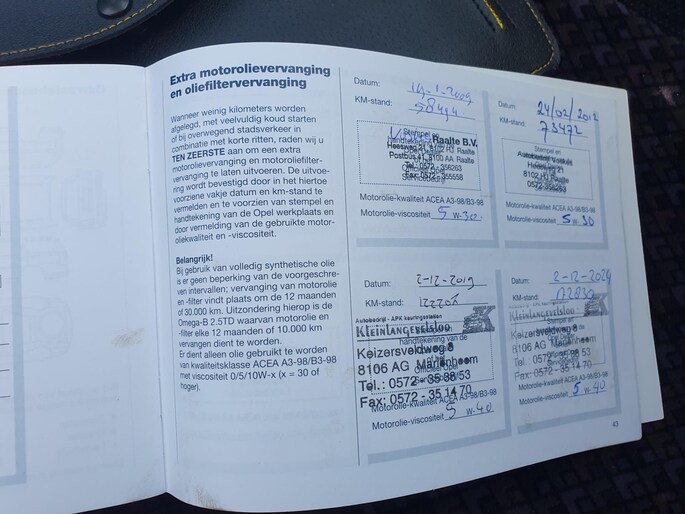 Extra motorolievervanging
en oliefiltervervanging
Wanneer weinig kilometers worden
afgelegd, met veelvuldig koud starten
of bij overwegend stadsverkeer in
combinatie met korte ritten, raden wij u
TEN ZEERSTE aan om een extra
motorolievervanging en motoroliefilter-
vervanging te laten uitvoeren. De uitvoe-
ring wordt bevestigd door in het hiertoe
voorziene vakje datum en km-stand te
vermelden en te voorzien van stempel en
handtekening van de Opel werkplaats en
door vermelding van de gebruikte motor-
oliekwaliteit en -viscositeit.
Belangrijk!
Bij gebruik van volledig synthetische olie
is er geen beperking van de voorgeschre-
ven intervallen; vervanging van motorolie
en -filter vindt plaats om de 12 maanden
of 30.000 km. Uitzondering hierop is de
Omega-B 2.5TD waarvan motorolie en
-filter elke 12 maanden of 10.000 km
vervangen dient te worden.
Er dient alleen olie gebruikt te worden
van kwaliteitsklasse ACEA A3-98/B3-98
met viscositeit 0/5/10W-x (x = 30 of
hoger).
Datum: -1-2009
KM-stand:
Stempel en
Raalte B.V.
Heesweg 21, 8102 HJ Raalte
Postbus 41, 8100 AA Raalte
Tel.: 0572-356263
Fax: 0572-355558
Motorolie-kwaliteit ACEA A3-98/B3-98
Motorolie-viscositeit 5 W-30
Datum: 24/02/2012
KM-stand: 73472
Stempel en
Autobedrijf
21
8102 HJ Raalte
0572-356263
Motorolie-kwaliteit ACEA A3-98/B3-98
Motorolie-viscositeit 5 W-30
Datum: 2-12-2019
KM-stand: 122205
Autobedrijf - APK keuringsstation
KLEINLANGEVELSLOO
handtekening van de
Keizersveldweg 8
8106 AG Mariënheem
Tel.: 0572 - 35 38 53
Fax: 0572 - 35 14 70
Motorolie-kwaliteit ACEA A3-98/B3-98
Motorolie-viscositeit 5 W-40
Datum: 2-12-2020
KM-stand: 172830
KLEINLANGEVELSLOO
Keizersveldweg 8
8106 AG Mariënheem
Tel.: 0572 - 35 38 53
Fax: 0572 - 35 14 70
Motorolie-kwaliteit ACEA A3-98/B3-98
Motorolie-viscositeit 5 W-40
45